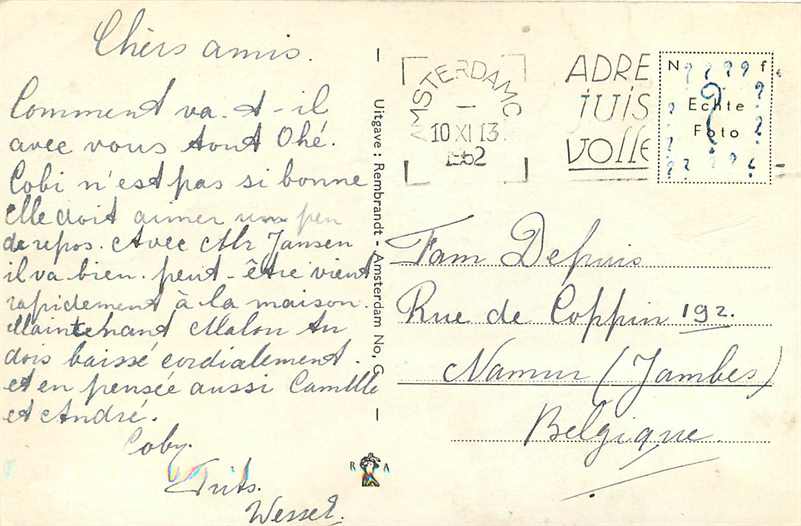 Chèrs amis.
Comment va-t-il
avec vous tout Ohé.
Cobi n'est pas si bonne
elle doit aimer un peu
de repos. Avec Mr Jansen
il va bien. peut-être vient
rapidement à la maison.
Maintenant
dois baissé cordialement.
et en pensée aussi Camille
et André.
Coby.
Frits.
Wessel.
Uitgave: Rembrandt - Amsterdam No. G
R A
AMSTERDAM C
10 XI 13
1952
ADRE
JUIS
VOLLE
N f
Echte
Foto
Fam Depuis
Rue de Coppin 192.
Namur (Jambes)
Belgique.